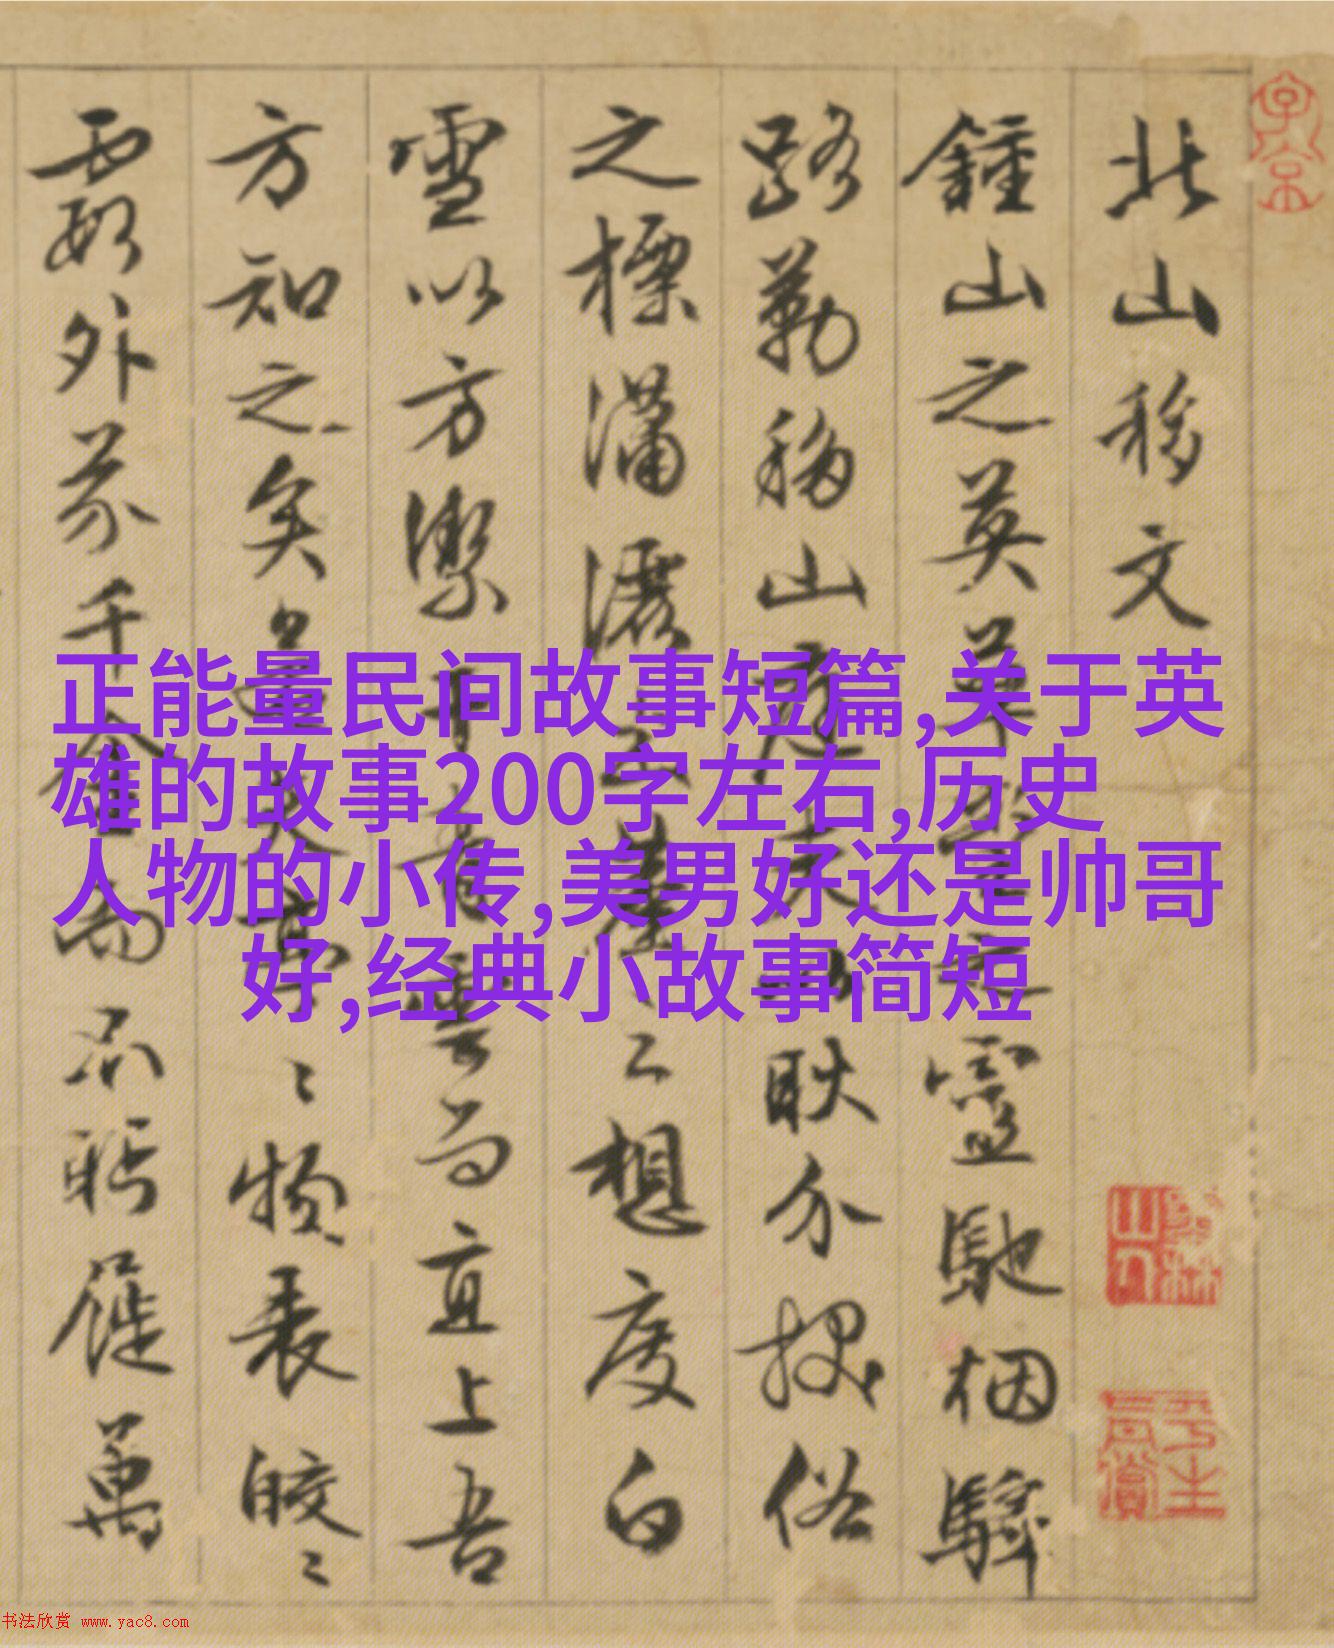 正能量民间故事短篇,关于英
雄的故事200字左右,历史
人物的小传,美男好还是帅哥
好,经典小故事简短
北山移文
鍾山之英草堂之靈馳烟驛
路勒移山庭夫以耿介拔俗
之標瀟灑出塵之想度白
雪以方潔干青雲而直上吾
方知之矣若其亭〻物表皎〻
霞外芥千金而不眄屣萬
子京
墨林山人
平生真賞
书法欣赏 www.yac8.com